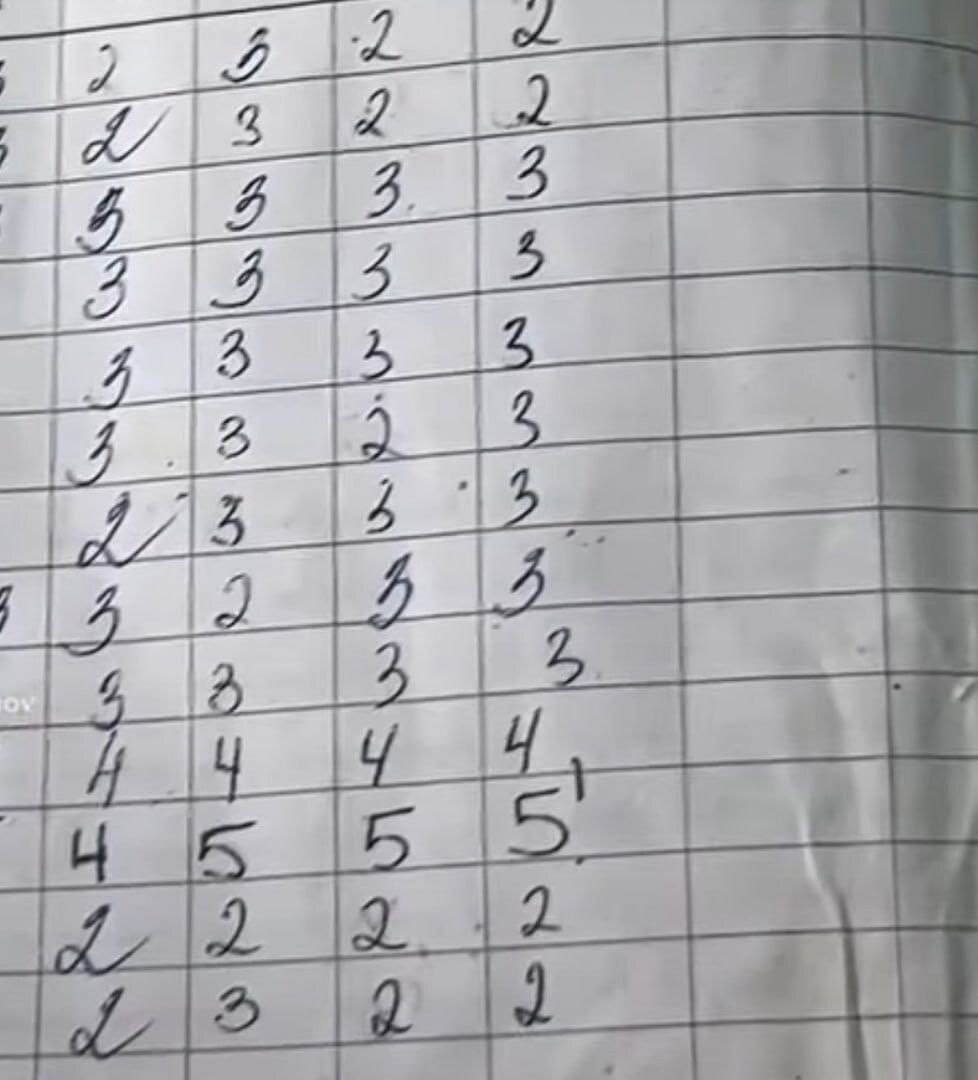 2 3 2 2
2 3 2 2
3 3 3 3
3 3 3 3
3 3 3 3
3 3 2 3
2 3 3 3
3 3 2 3 3
3 3 3 3
4 4 4 4
4 5 5 5
2 2 2 2
2 3 2 2